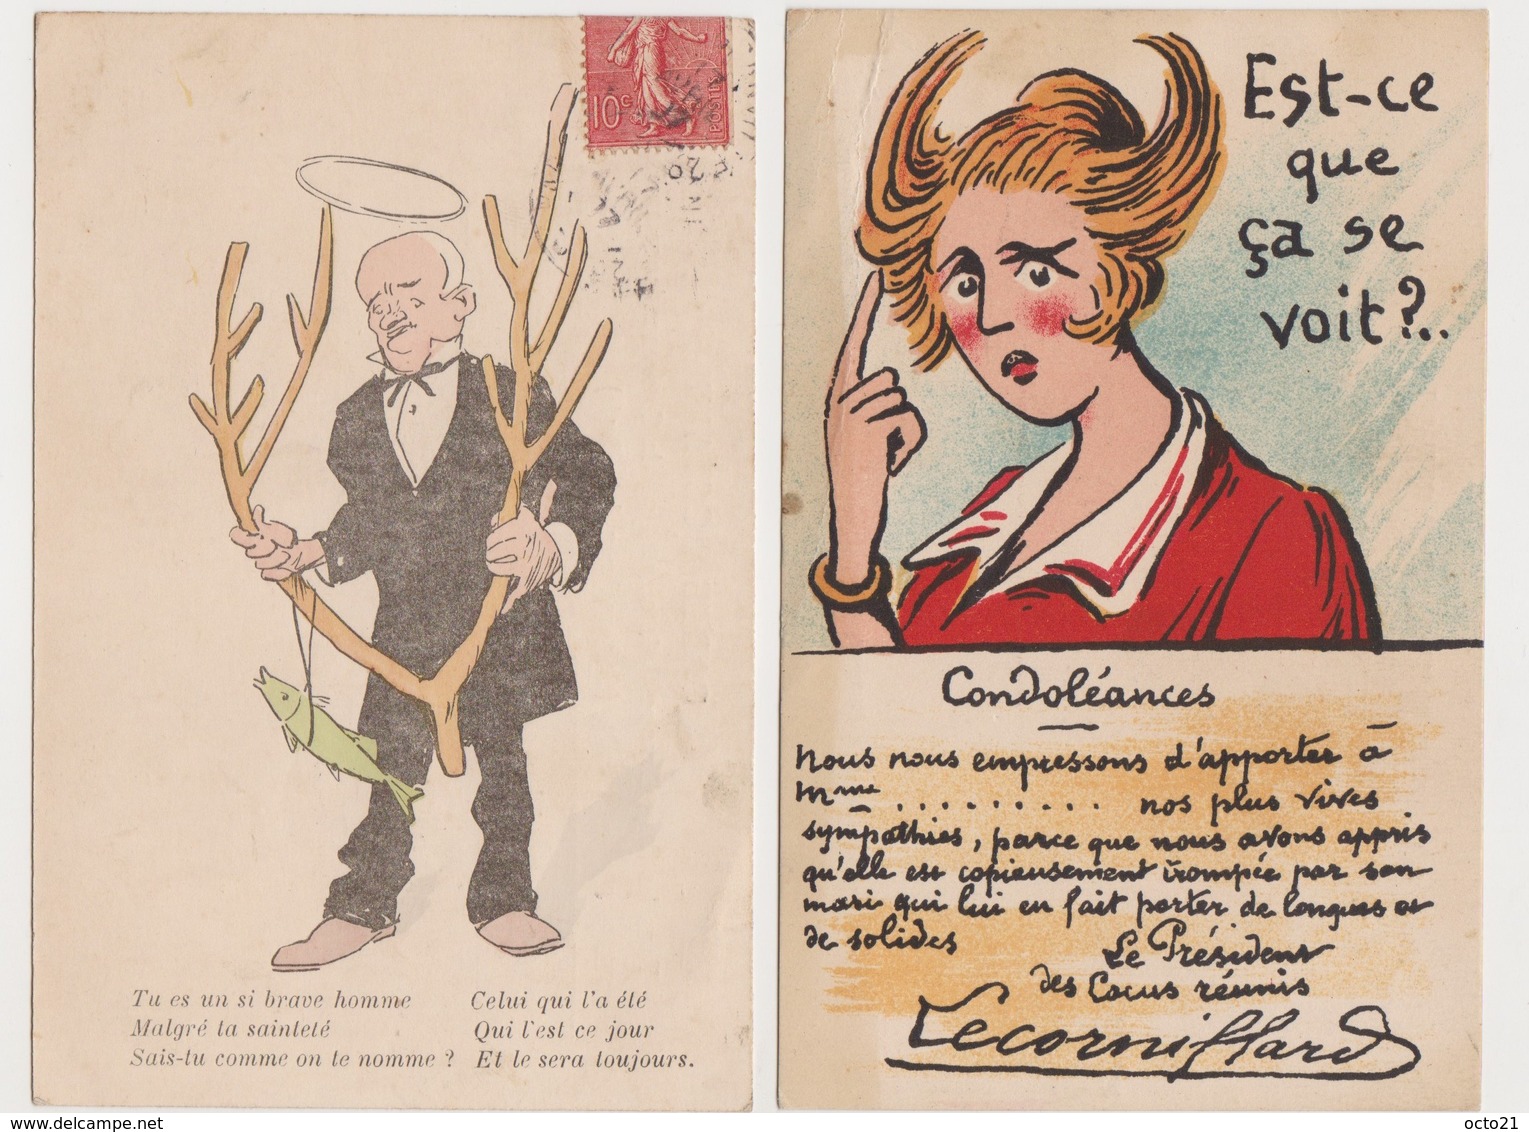 10c
POSTES
Tu es un si brave homme
Malgré ta sainteté
Sais-tu comme on te nomme ?
Celui qui l'a été
Qui l'est ce jour
Et le sera toujours.
Est-ce
que
ça se
voit?..
Condoléances
Nous nous empressons d'apporter à
Mme ......... nos plus vives
sympathies, parce que nous avons appris
qu'elle est copieusement trompée par son
mari qui lui en fait porter de longues et
de solides
Le Président
des Cocus réunis
Lecorniflard
www.delcampe.net
octo21